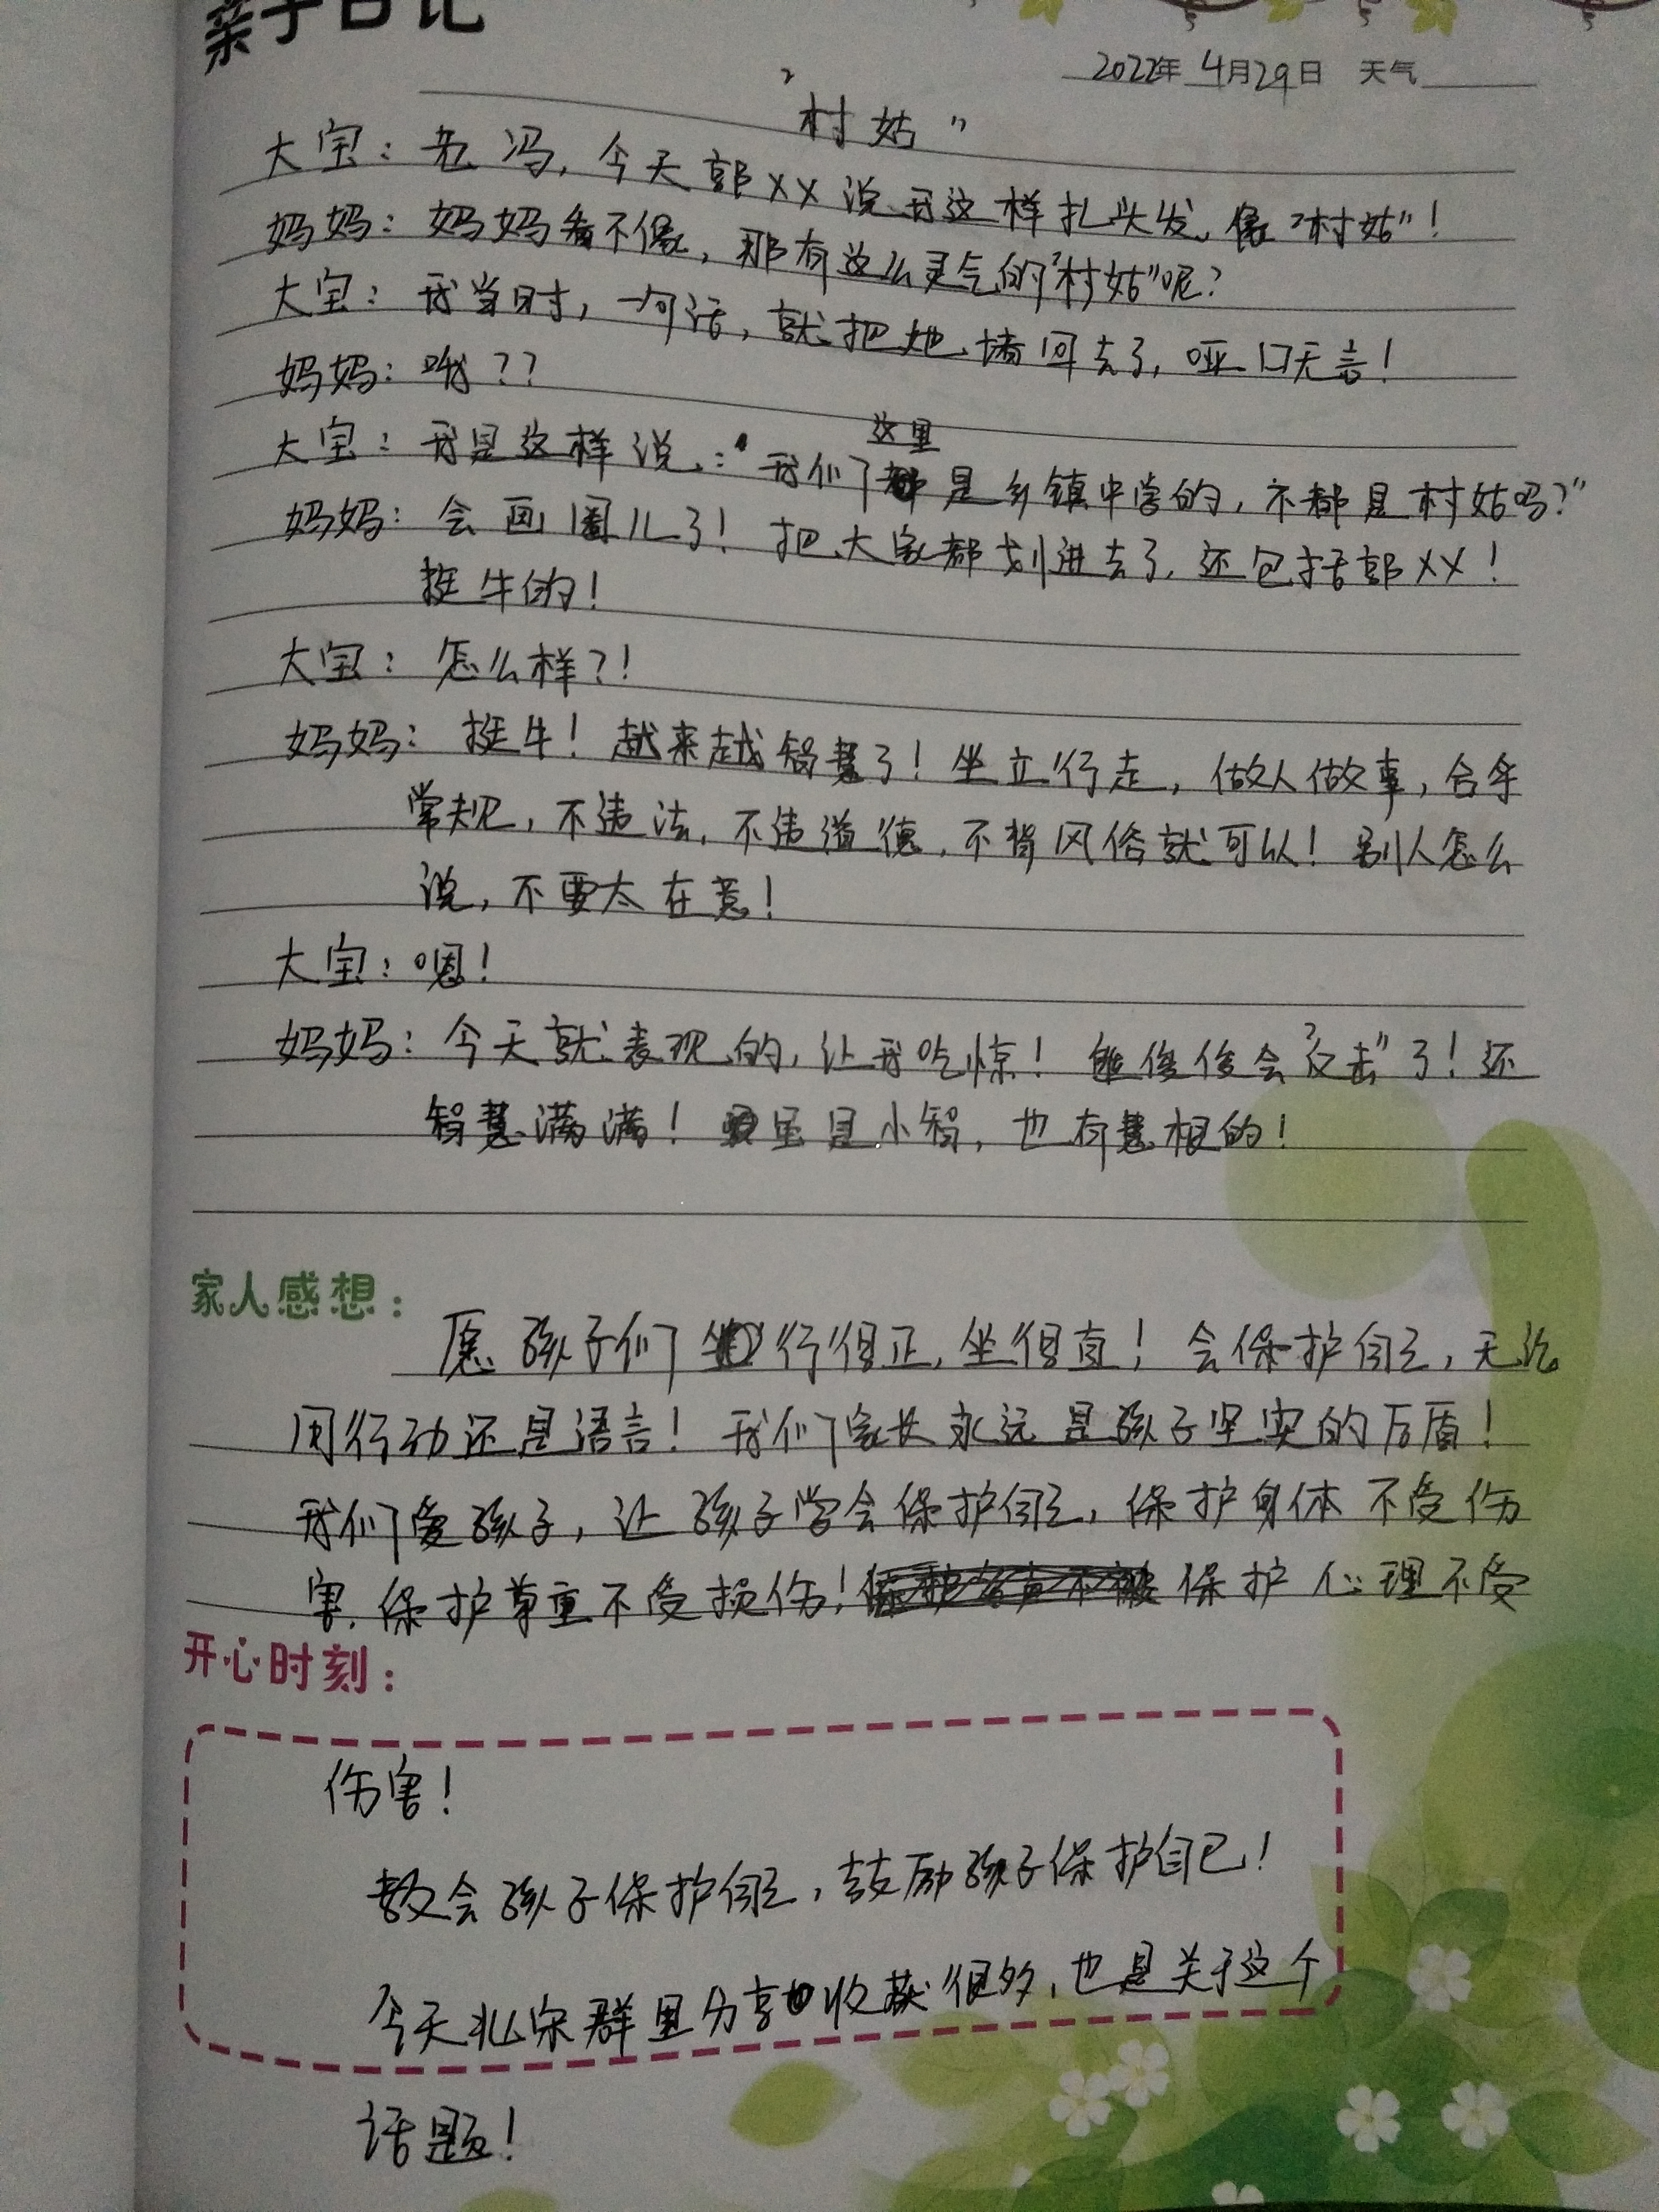 亲子日记
2022年 4月29日 天气
“村姑”
大宝：老冯，今天郭XX说我这样扎头发，像“村姑”！
妈妈：妈妈看不像，那有这么灵气的“村姑”呢？
大宝：我当时，一句话，就把她堵回去了，哑口无言！
妈妈：哦？？
大宝：我是这样说：“我们这里是乡镇中学的，不都是村姑吗？”
妈妈：会画圈儿了！把大家都划进去了，还包括郭XX！
挺牛的！
大宝：怎么样？！
妈妈：挺牛！越来越智慧了！坐立行走，做人做事，合乎
常规，不违法，不违道德，不背风俗就可以！别人怎么
说，不要太在意！
大宝：嗯！
妈妈：今天就表现的，让我吃惊！能俊俊会“反击”了！还
智慧满满！虽是小智，也有慧根的！
家人感想：
愿孩子们行得正，坐得直！会保护自己，无论
用行动还是语言！我们家长永远是孩子坚实的后盾！
我们爱孩子，让孩子学会保护自己，保护身体不受伤
害，保护尊重不受损伤！保护心理不受
开心时刻：
伤害！
教会孩子保护自己，鼓励孩子保护自己！
今天北宋群里分享收获很多，也是关于这个
话题！